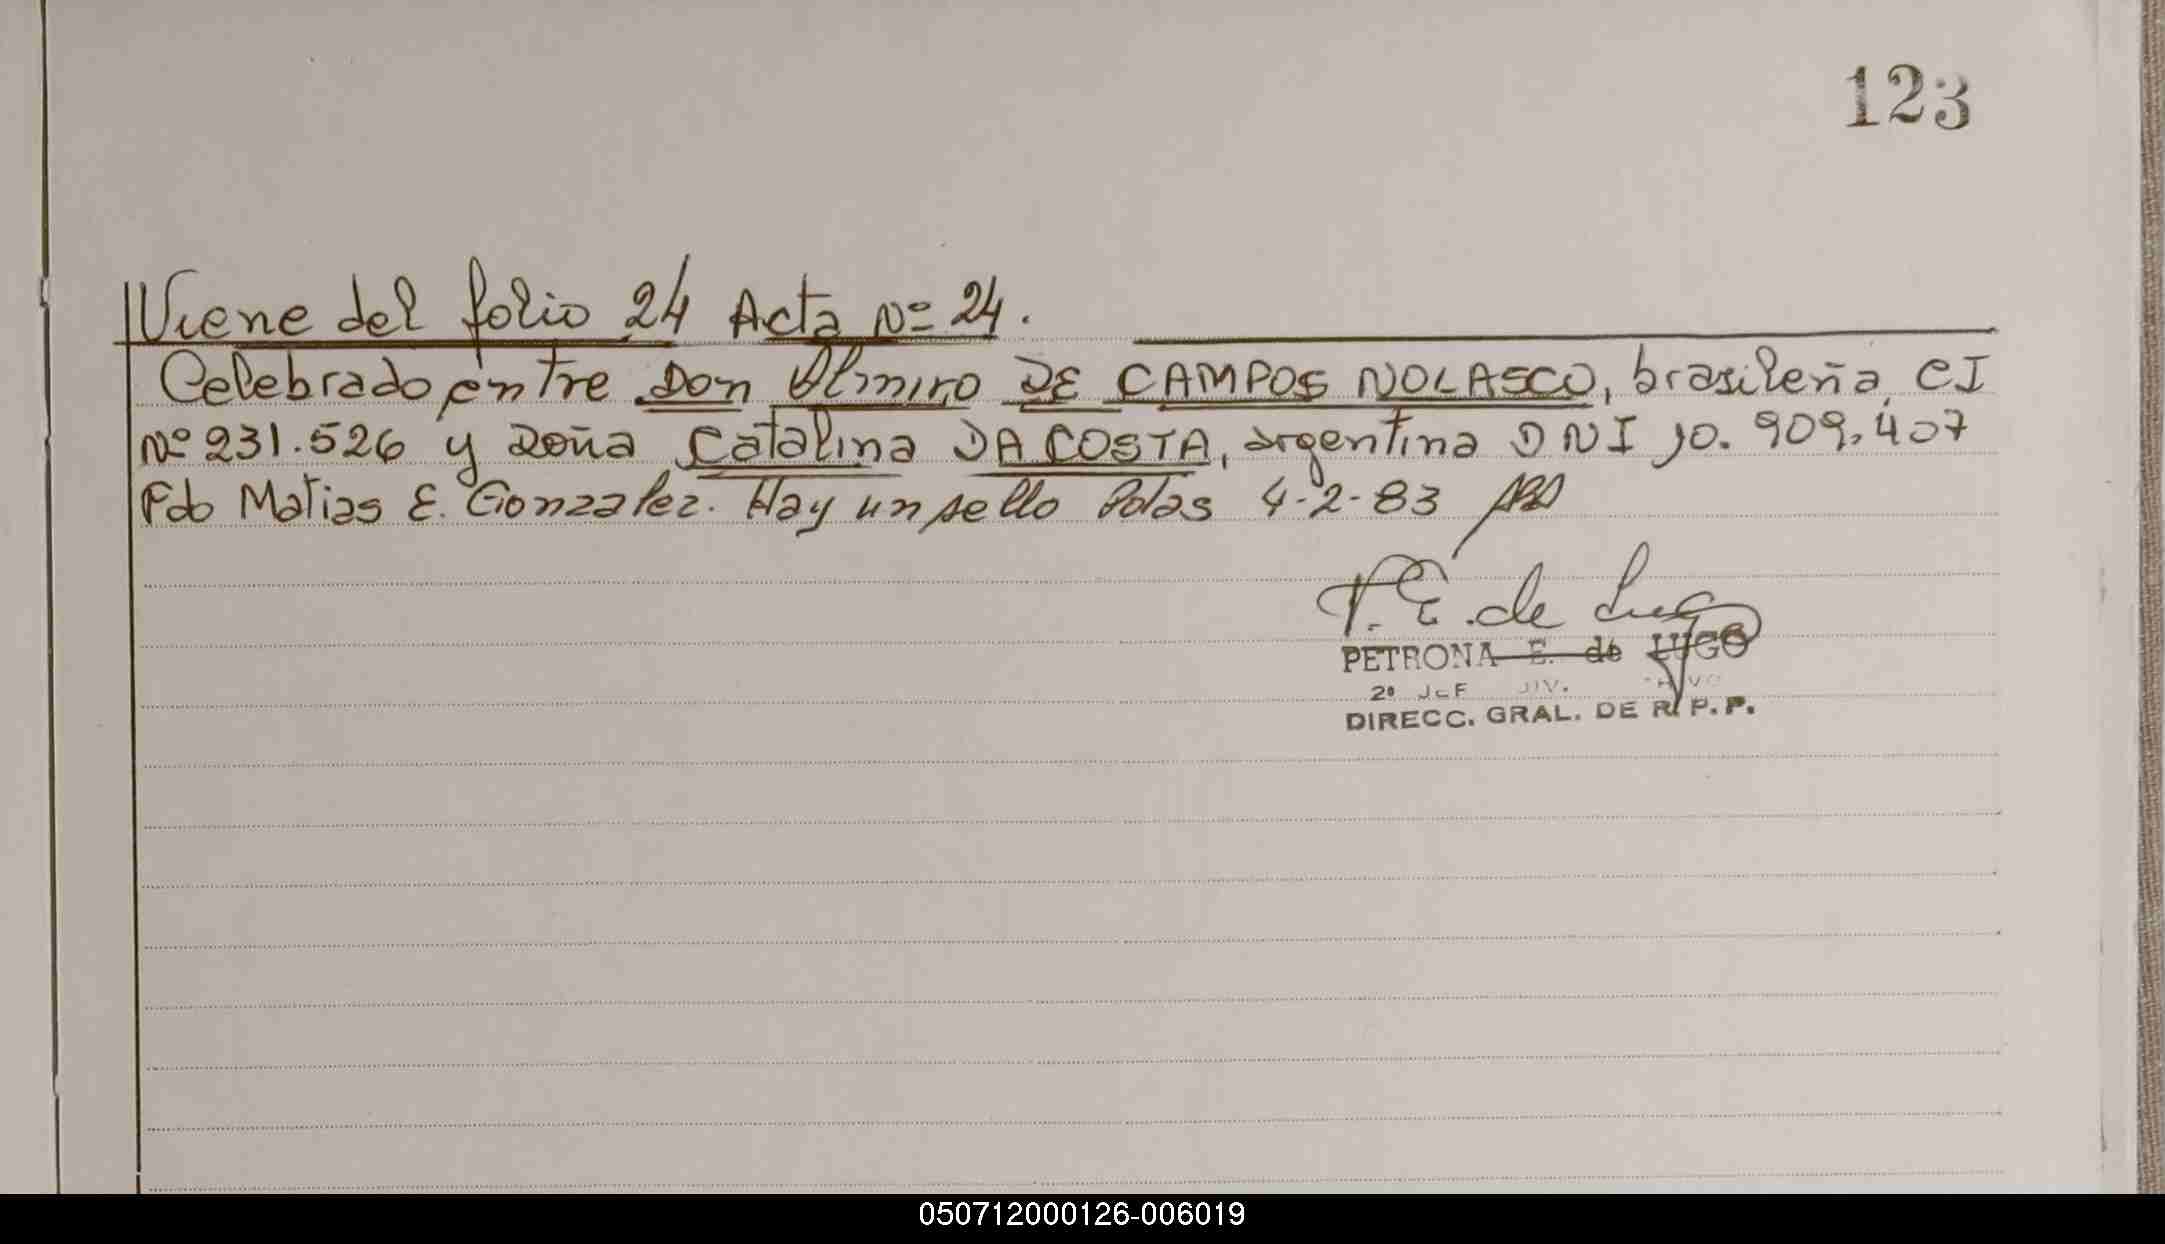 123
Viene del folio 24 Acta Nº 24.
Celebrado entre Don Almiro DE CAMPOS NOLASCO, brasileña CI
Nº 231.526 y Doña Catalina DA COSTA, argentina DNI 10.909.407
Fdo Matias E. Gonzalez. Hay un sello Pdas 4-2-83
P. E. de Lugo
PETRONA E. de LUGO
2º JEF DIV.
DIRECC. GRAL. DE R. P. P.
050712000126-006019